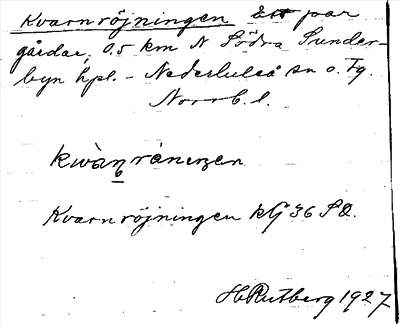 Kvarnröjningen Ett par
gårdar, 0.5 km N Södra Sunder-
byn hpl. – Nederluleå sn o. Tg.
Norrb. l.
Kvarnröjningen kG 36 SO.
H Rutberg 1927